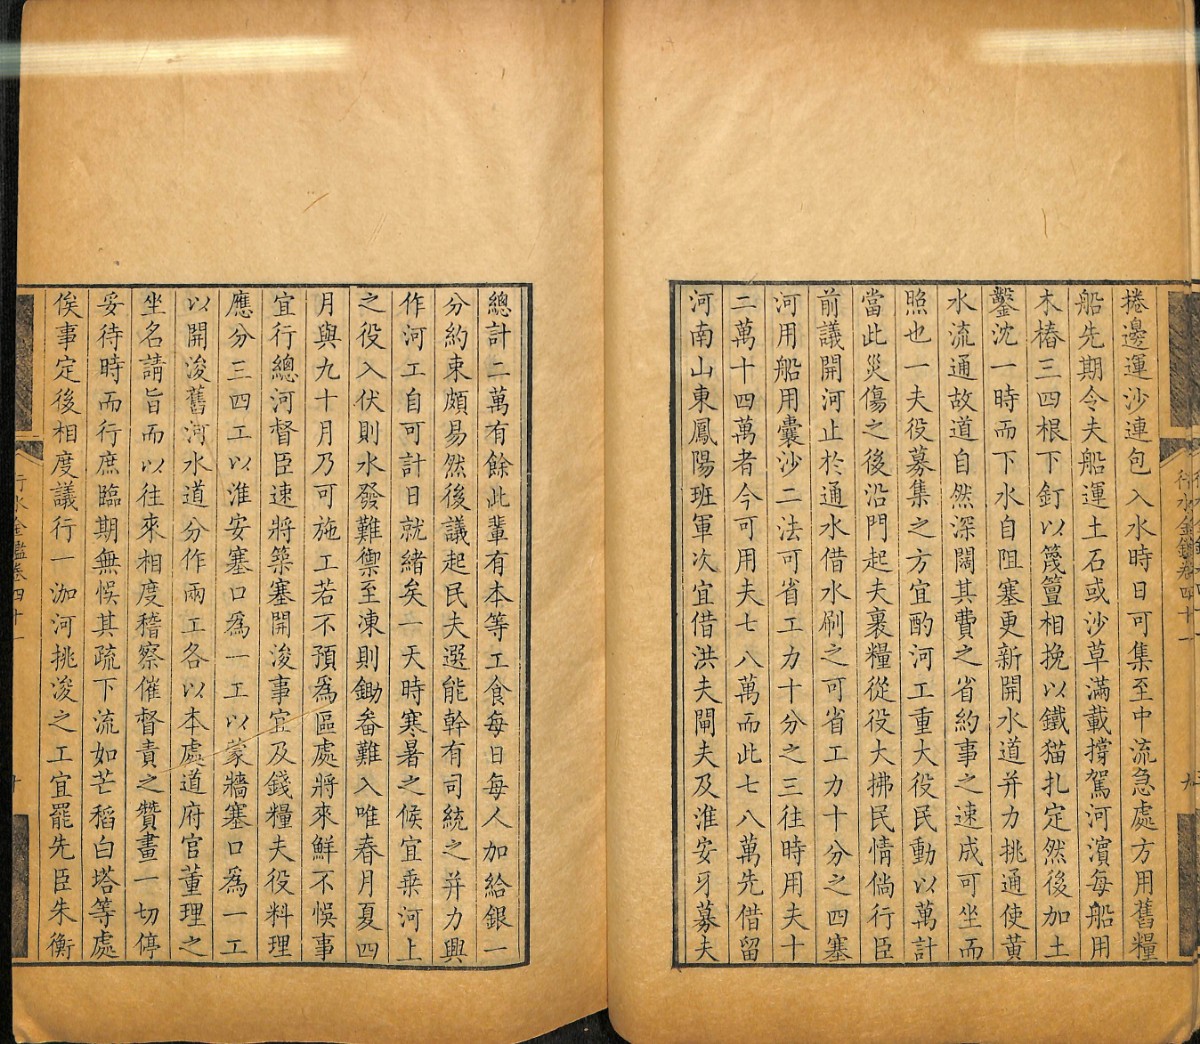 捲邊運沙連包入水時日可集至中流急處方用舊糧
船先期令夫船運土石或沙草滿載撐駕河濵每船用
木樁三四根下釘以篾簟相挽以鐵猫扎定然後加土
鑿沈一時而下水自阻塞更新開水道并力挑通使黄
水流通故道自然深闊其費之省約事之速成可坐而
照也一夫役募集之方宜酌河工重大役民動以萬計
當此災傷之後沿門起夫裹糧從役大拂民情倘行臣
前議開河止於通水借水刷之可省工力十分之四塞
河用船用囊沙二法可省工力十分之三往時用夫十
二萬十四萬者今可用夫七八萬而此七八萬先借留
河南山東鳳陽班軍次宜借洪夫閘夫及淮安牙募夫
行水金鑑卷四十一
九
總計二萬有餘此輩有本等工食每日每人加給銀一
分約束頗易然後議起民夫選能幹有司統之并力興
作河工自可計日就緒矣一天時寒暑之候宜乘河上
之役入伏則水發難禦至凍則鋤畚難入唯春月夏四
月與九十月乃可施工若不預爲區處將來鮮不悞事
宜行總河督臣速將築塞開浚事宜及錢糧夫役料理
應分三四工以淮安塞口爲一工以蒙牆塞口爲一工
以開浚舊河水道分作兩工各以本處道府官董理之
坐名請旨而以往來相度稽察催督責之贊畫一切停
妥待時而行庶臨期無悞其疏下流如芒稻白塔等處
俟事定後相度議行一泇河挑浚之工宜罷先臣朱衡
行水金鑑卷四十一